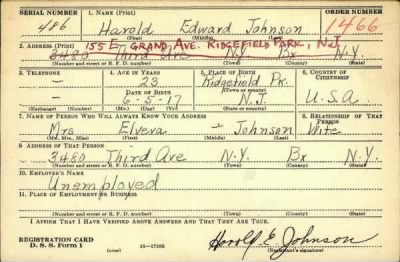 SERIAL NUMBER 1. NAME (Print) ORDER NUMBER
486 Harold Edward Johnson 1466
(First) (Middle) (Last)
155 E. GRAND AVE. RIDGEFIELD PARK, N.J.
2. ADDRESS (Print)
3480 Third Ave N.Y. Bx N.Y.
(Number and street or R. F. D. number) (Town) (County) (State)
3. TELEPHONE 4. AGE IN YEARS 5. PLACE OF BIRTH 6. COUNTRY OF CITIZENSHIP
- 23 Ridgefield Pk.
DATE OF BIRTH (Town or county)
- 6-5-17 N.J. U.S.A.
(Exchange) (Number) (Mo.) (Day) (Yr.) (State or country)
7. NAME OF PERSON WHO WILL ALWAYS KNOW YOUR ADDRESS 8. RELATIONSHIP OF THAT PERSON
Mrs Elvera - Johnson Wife
(Mr., Mrs., Miss) (First) (Middle) (Last)
9. ADDRESS OF THAT PERSON
3480 Third Ave N.Y. Bx N.Y.
(Number and street or R. F. D. number) (Town) (County) (State)
10. EMPLOYER'S NAME
Unemployed
11. PLACE OF EMPLOYMENT OR BUSINESS
(Number and street or R. F. D. number) (Town) (County) (State)
I AFFIRM THAT I HAVE VERIFIED ABOVE ANSWERS AND THAT THEY ARE TRUE.
REGISTRATION CARD
D. S. S. FORM 1 (over) 16-17105 Harold E. Johnson
(Registrant's signature)